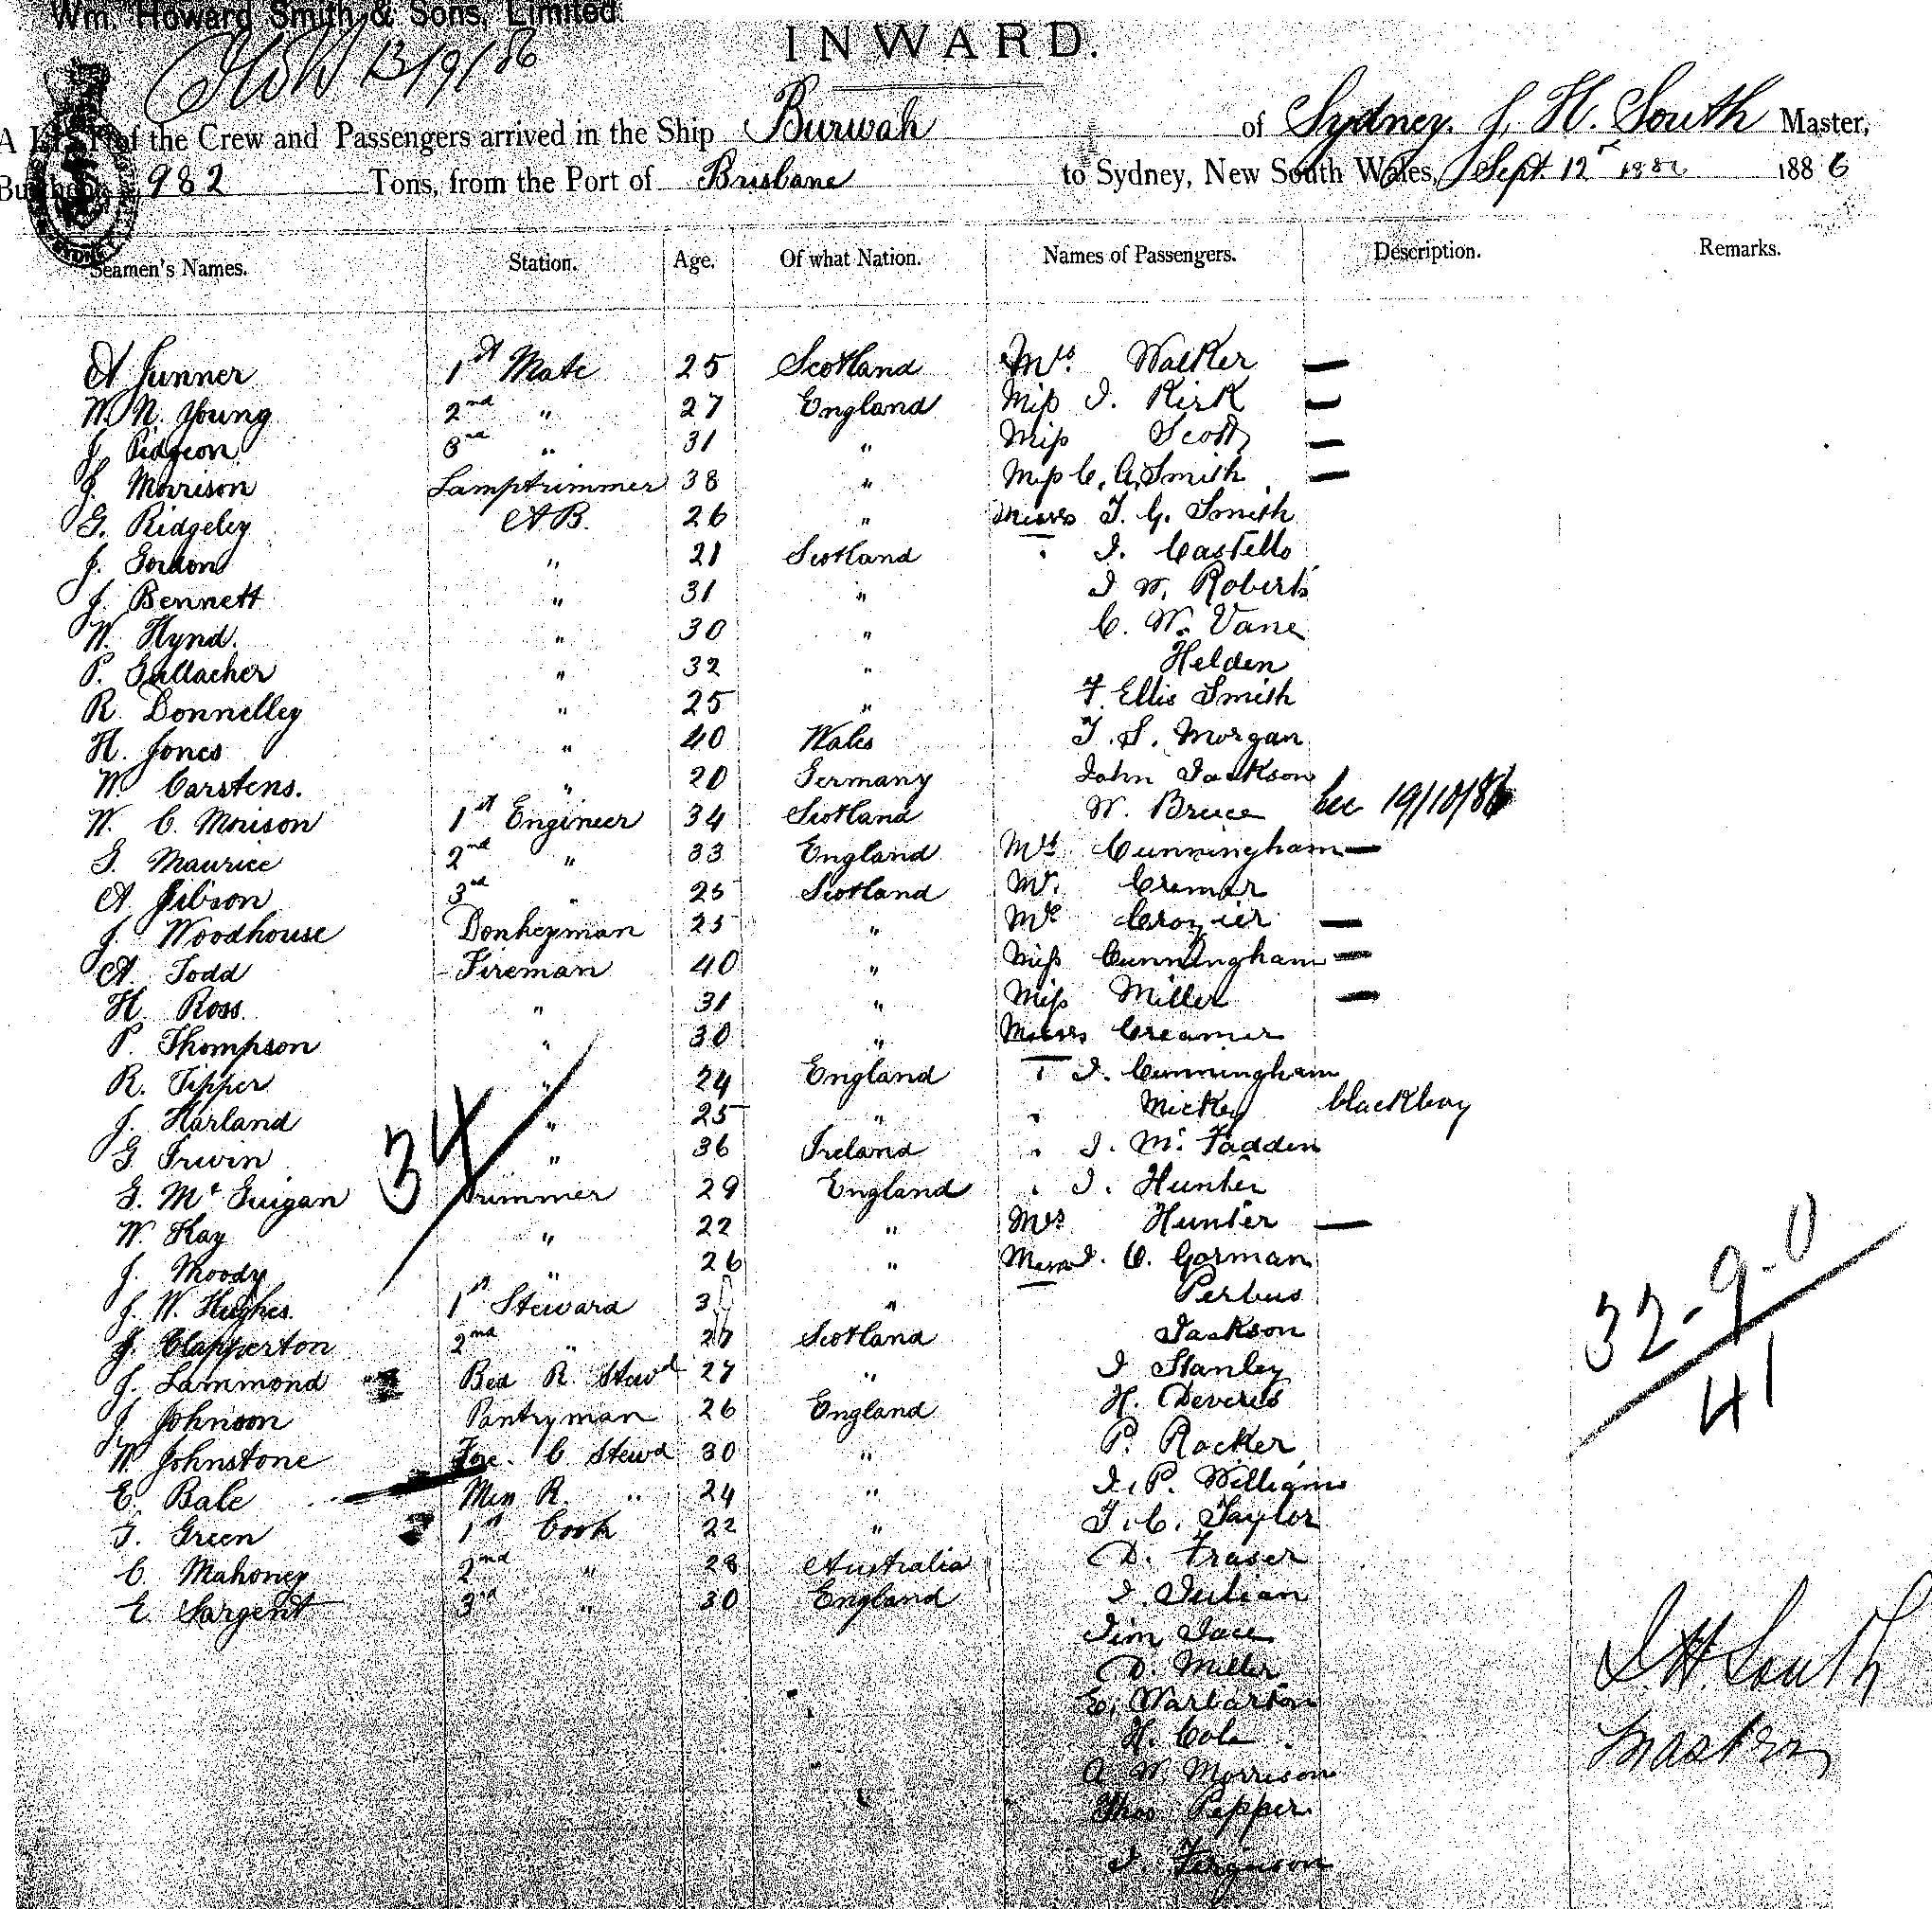 Wm. Howard Smith & Sons, Limited.
13/9/86
INWARD.
A LIST of the Crew and Passengers arrived in the Ship Burwah of Sydney. J. H. South Master,
Burthen 982 Tons, from the Port of Brisbane to Sydney, New South Wales, Sept 12 1886 1886
Seamen's Names. Station. Age. Of what Nation. Names of Passengers. Description. Remarks.
A Junner 1st Mate 25 Scotland Mrs. Walker —
W. N. Young 2nd " 27 England Miss J. Kirk —
J. Pidgeon 3rd " 31 " Miss Scott —
J. Morrison Lamptrimmer 38 " Miss C. A. Smith —
G. Ridgeley AB. 26 " Messrs T. G. Smith
J. Gordon " 21 Scotland " J. Castello
J. Bennett " 31 " J W. Roberts
W. Hynd. " 30 " C. W. Vane
P. Gallacher " 32 " Helden
R. Donnelley " 25 " F. Ellis Smith
H. Jones " 40 Wales T. S. Morgan
W. Carstens. " 20 Germany John Jackson
W. C. Morison 1st Engineer 34 Scotland W. Bruce 19/10/86
G. Maurice 2nd " 33 England Mrs Cunningham —
A. Gibson 3rd " 25 Scotland Mr. Cremer
J. Woodhouse Donkeyman 25 " Crozier —
A. Todd Fireman 40 " Miss Cunningham —
H. Ross. " 31 " Miss Miller —
P. Thompson " 30 " Messrs Creamer
R. Tipper " 24 England " J. Cunningham
J. Harland " 25 " " Mickey blackboy
G. Irwin " 36 Ireland " J. Mc Fadden
G. Mc Guigan Trimmer 29 England " J. Hunter
34
W. Kay " 22 " Mrs Hunter —
J. Moody " 26 " Messrs J. C. Gorman
J. W. Hughes 1st Steward " Perbus
J. Clapperton 2nd " 27 Scotland Jackson
J. Lammond Bed R. Stewd 27 " J Stanley
J. Johnson Pantryman 26 England H. Deveres
W Johnstone Fore. C Stewd 30 " P. Rocker
E. Bale Mess R. " 24 " J. P. Williams
T. Green 1st Cook 22 " T. C. Taylor
C. Mahoney 2nd " 28 Australia D. Fraser
E. Sargent 3rd " 30 England J. Julian
Jim Jace
D. Miller
E. Warbarton
H. Cole
A W. Morrison
Thos Pepper
J. Ferguson
32-9-0
41
J. H. South
Master